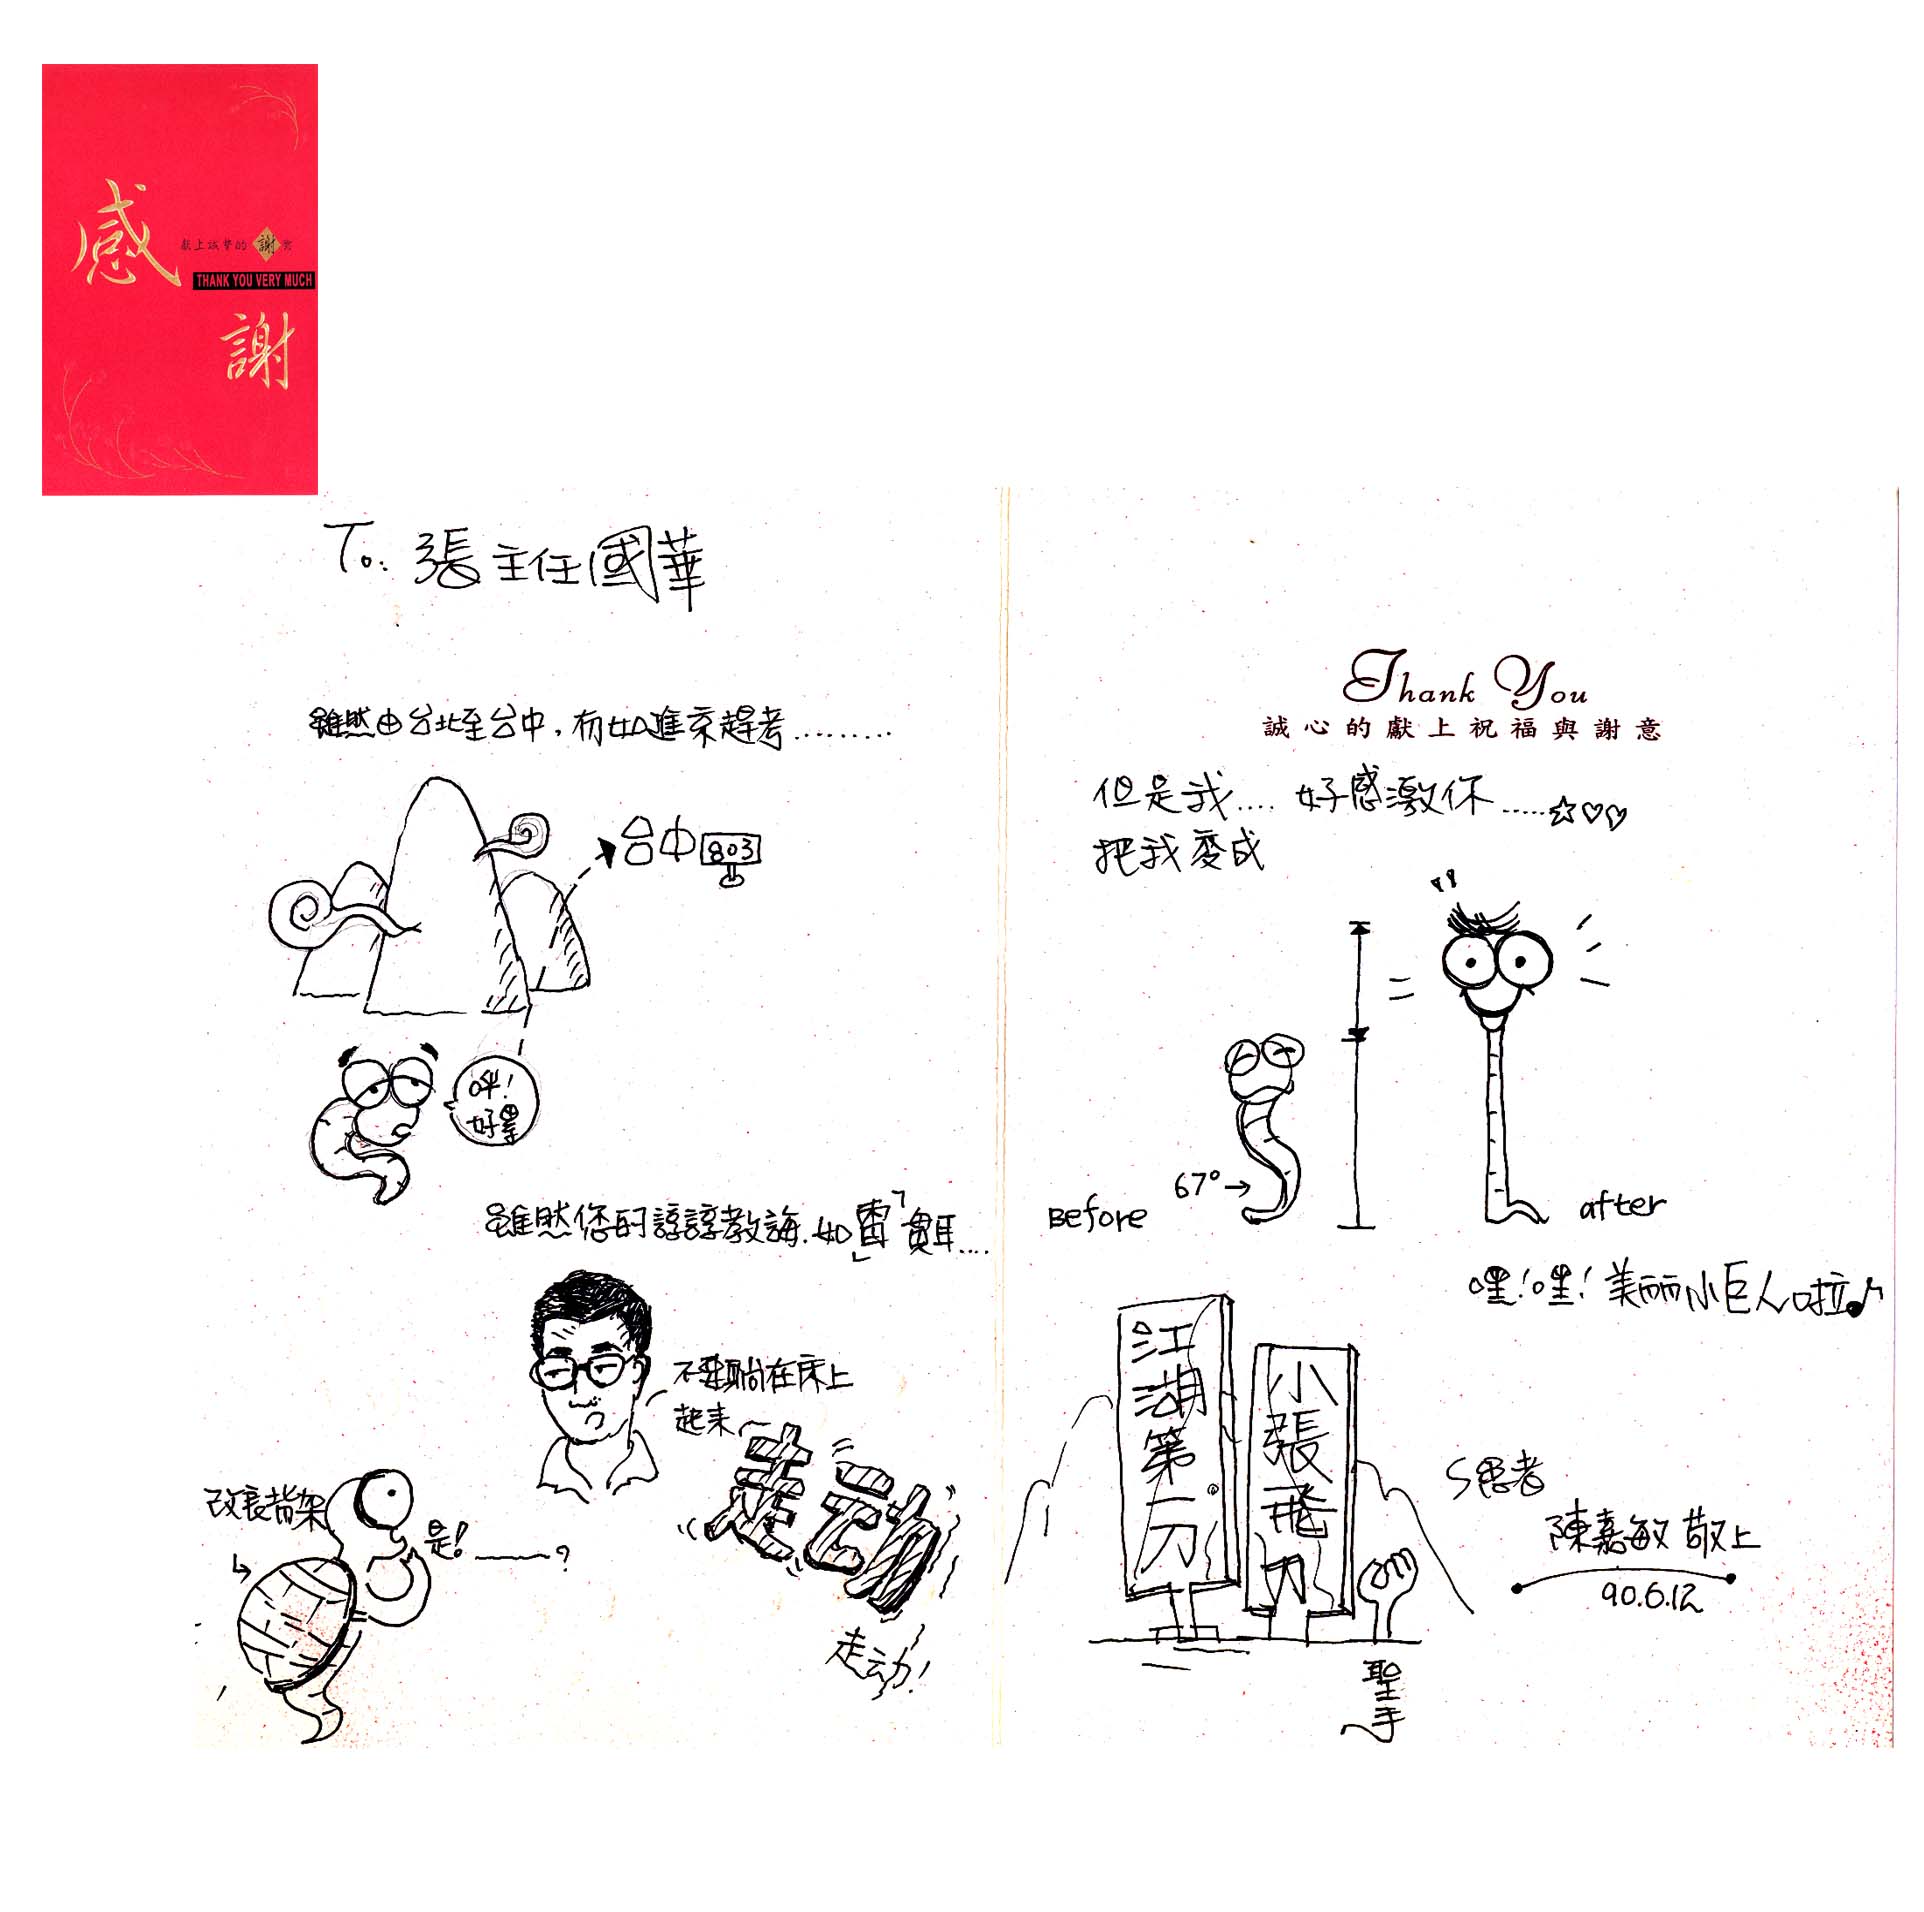 感
獻上誠摯的謝意
THANK YOU VERY MUCH
謝
To. 張主任國華
雖然由台北至台中，有如進京趕考………
台中 803
呼!
好累
雖然您的諄諄教誨．如「雷」貫耳….
不要躺在床上
起來
走动
走动!
改良背架
是!———?
Thank You
誠心的獻上祝福與謝意
但是我…. 好感激你……☆♡♡
把我變成
=
67°→
Before
after
嘿!嘿! 美丽小巨人啦♪
江湖第一刀
小張飛刀
聖手
S患者
陳嘉敏 敬上
90.6.12